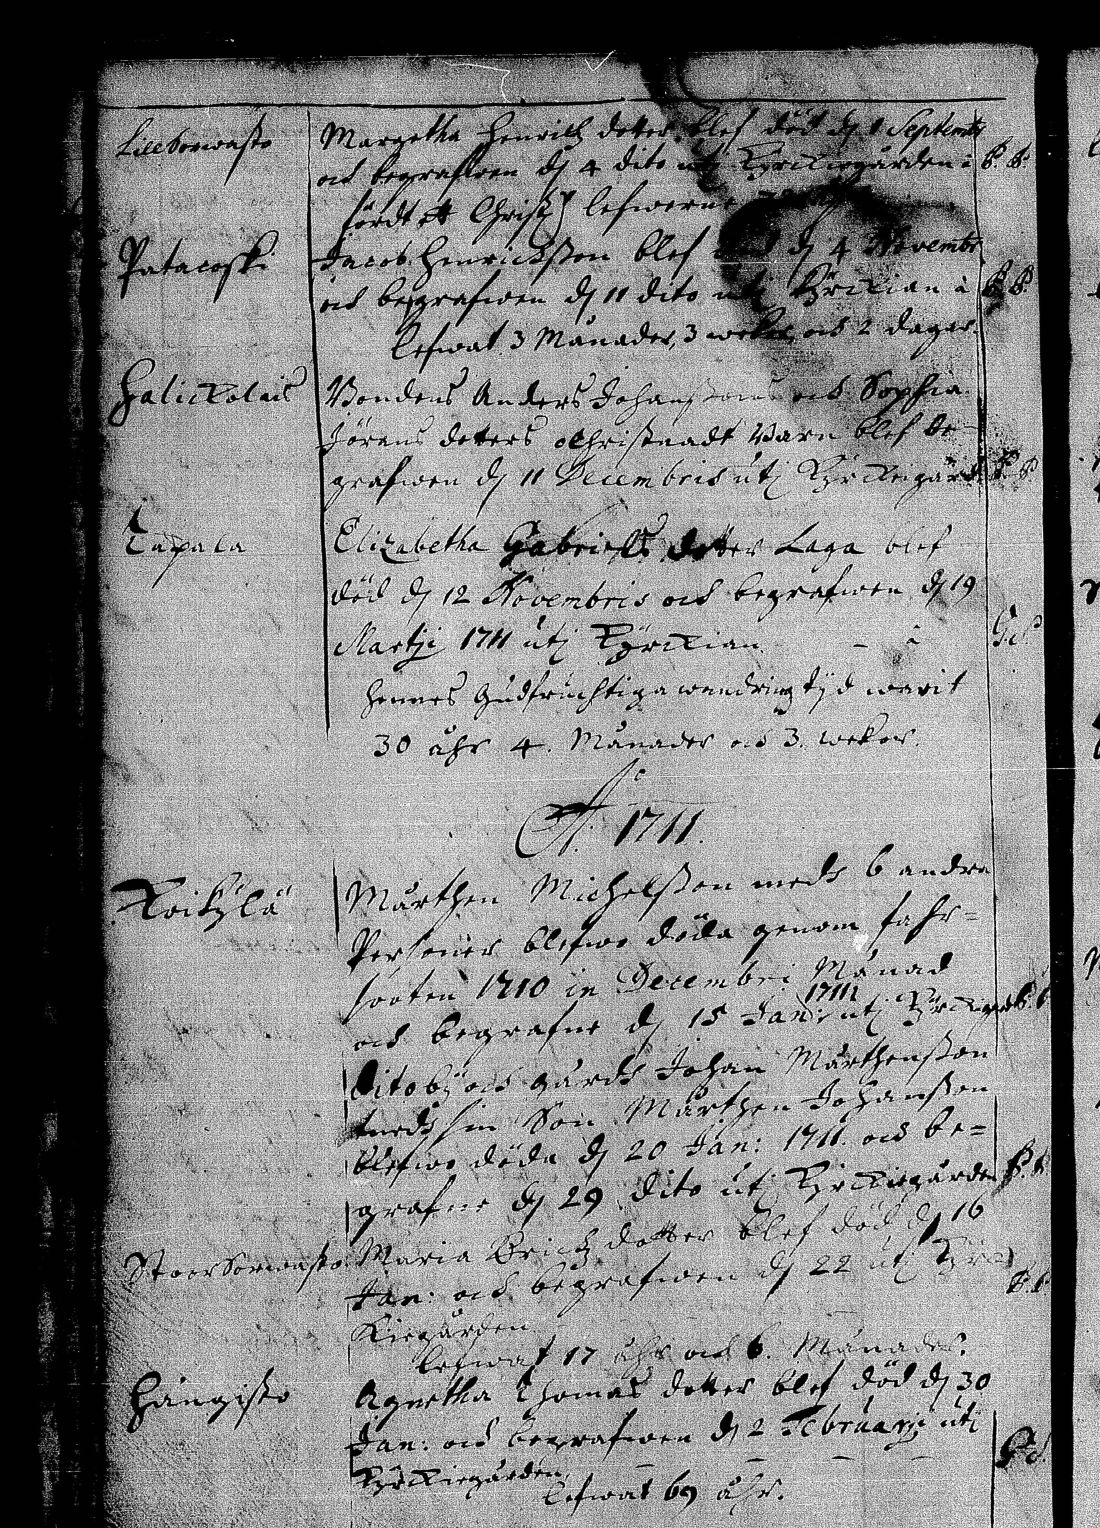 Lillsorwasto Margetha Henrichz dotter blef död dj 1 Septemb
och begrafwen dj 4 dito uti Kyrckiogården
Patacoski Jacob Henrichsson blef död dj 4 Novembr
och begrafwen dj 11 dito uti Kyrckian
lefwat 3 Månader, 3 wekor och 2 dagar.
Halickolais Bondens Anders Johanssons och Sophia
Jörens dotters ochristnadt Barn blef be-
grafwen dj 11 Decembris utj Kyrckiegård
Tapala Elizabetha Gabriels dotter Laga blef
död dj 12 Novembris och begrafwen dj 19
Martji 1711 utj Kyrckian
hennes Gudfruchtiga wandringztijd warit
30 åhr 4. Månader och 3. wekor.
Ao. 1711.
Koikylä Mårthen Michelsson medh 6 andra
Personer blefwo döda genom fahr=
sooten 1710 in Decembri Månad
och begrafne dj 15 Jan: 1711 utj Kyrckiogår
Dito by och gårdh Johan Mårthensson
medh sin Son Mårthen Johansson
blefwo döda dj 20 Jan: 1711. och be=
grafne dj 29 dito utj Kyrckiegården
Stoorsorwasto Maria Erichz dotter blef död dj 16
Jan: och begrafwen dj 22 utj Kyrc
kiegården
lefwat 17 åhr och 6. Månader.
Hångisto Agnetha Thomas dotter blef död dj 30
Jan: och begrafwen dj 2 Februarji uti
Kyrckiegården
lefwat 69 åhr.